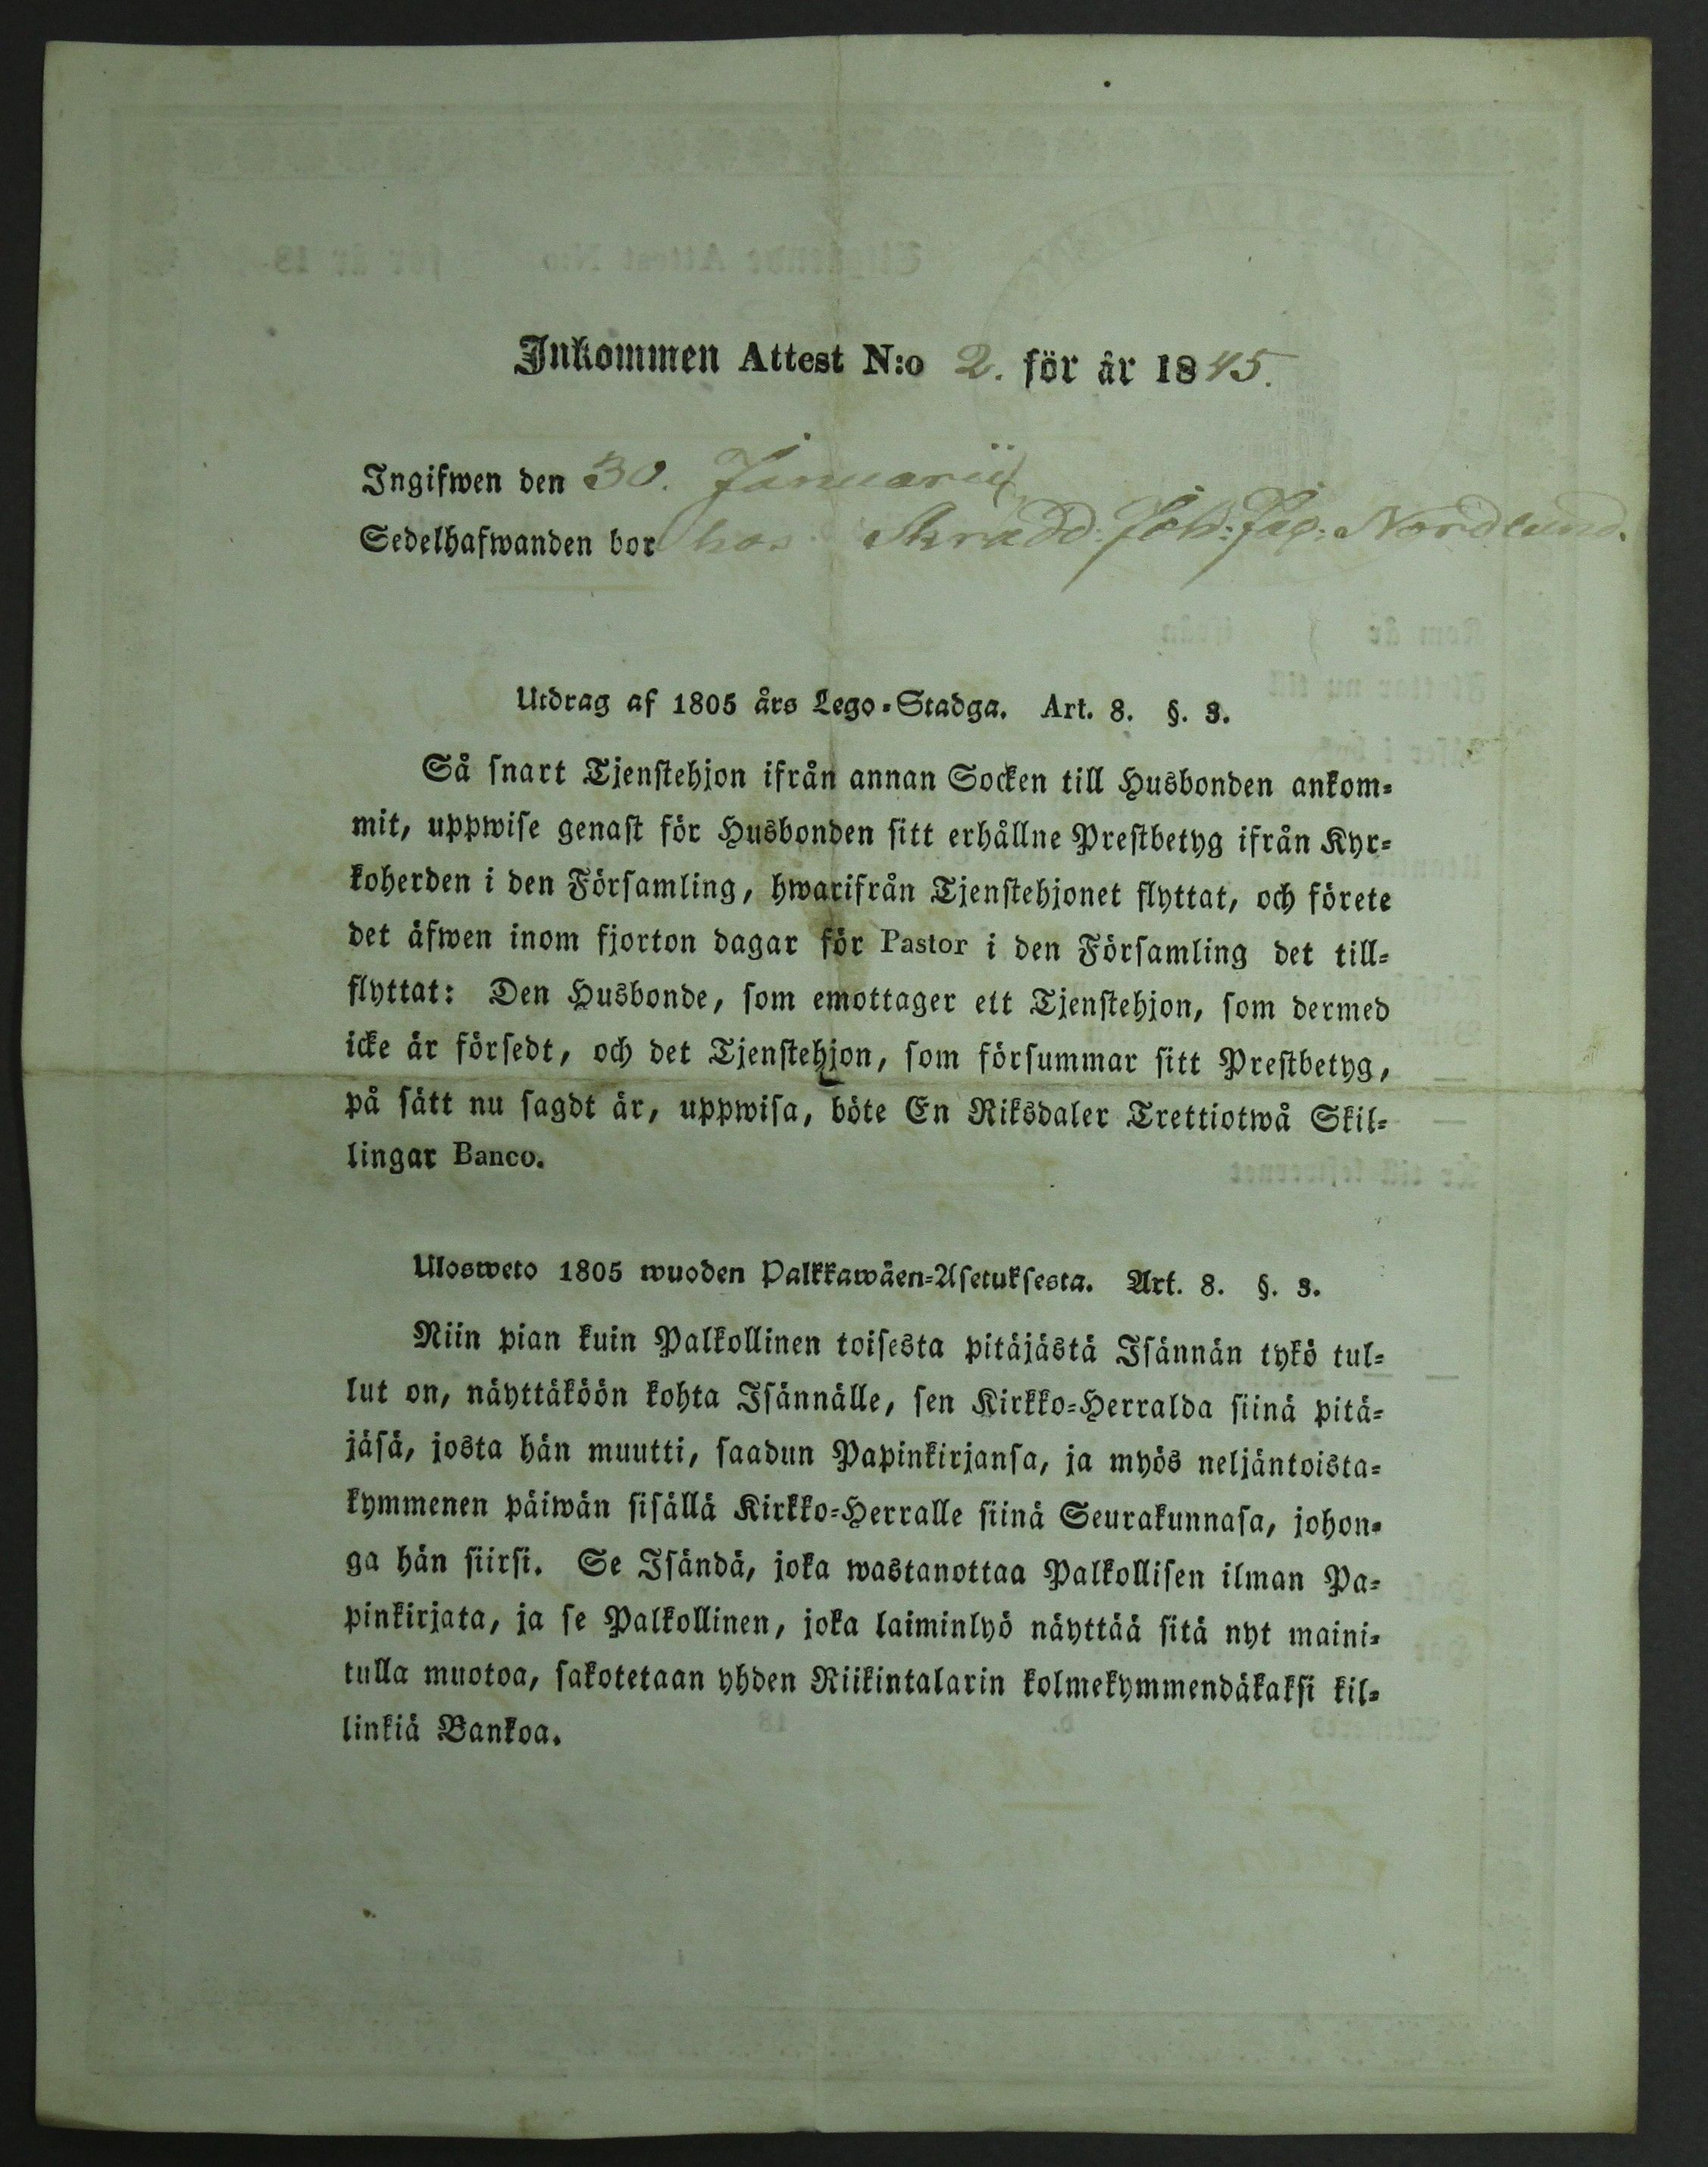 Inkommen Attest N:o 2. för år 1845.
Ingifwen den 30. Januarii
Sedelhafwanden bor hos Skrädd: Joh: Jac: Nordlund.
Utdrag af 1805 års Lego-Stadga. Art. 8. §. 3.
Så snart Tjenstehjon ifrån annan Socken till Husbonden ankom-
mit, uppwise genast för Husbonden sitt erhållne Prestbetyg ifrån Kyr-
koherden i den Församling, hwarifrån Tjenstehjonet flyttat, och förete
det äfwen inom fjorton dagar för Pastor i den Församling det till-
flyttat: Den Husbonde, som emottager ett Tjenstehjon, som dermed
icke är försedt, och det Tjenstehjon, som försummar sitt Prestbetyg,
på sätt nu sagdt är, uppwisa, böte En Riksdaler Trettiotwå Skil-
lingar Banco.
Ulosweto 1805 wuoden Palkkawäen-Asetuksesta. Art. 8. §. 3.
Niin pian kuin Palkollinen toisesta pitäjästä Isännän tykö tul-
lut on, näyttäköön kohta Isännälle, sen Kirkko-Herralda siinä pitä-
jäsä, josta hän muutti, saadun Papinkirjansa, ja myös neljäntoista-
kymmenen päiwän sisällä Kirkko-Herralle siinä Seurakunnasa, johon-
ga hän siirsi. Se Isändä, joka wastanottaa Palkollisen ilman Pa-
pinkirjata, ja se Palkollinen, joka laiminlyö näyttää sitä nyt maini-
tulla muotoa, sakotetaan yhden Riikintalarin kolmekymmendäkaksi kil-
linkiä Bankoa.